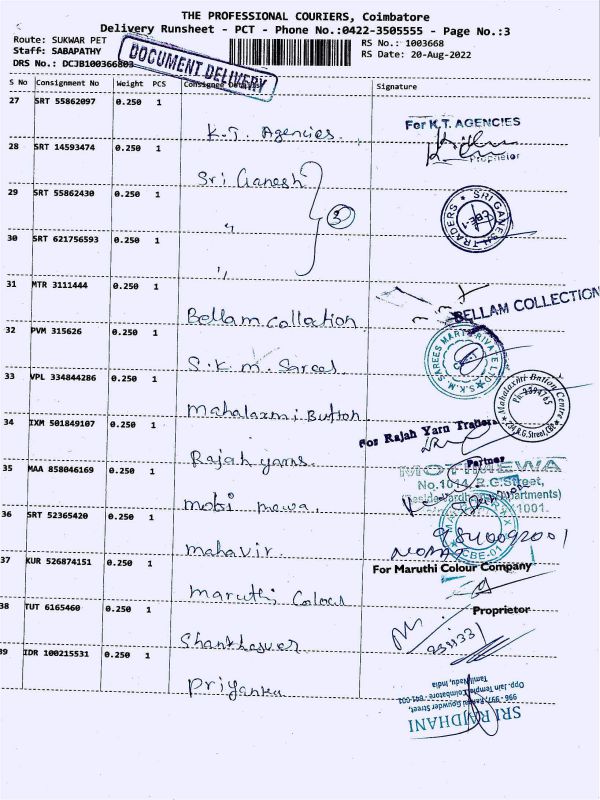 THE PROFESSIONAL COURIERS, Coimbatore
Delivery Runsheet - PCT - Phone No.:0422-3505555 - Page No.:3
Route: SUKWAR PET
RS No.: 1003668
Staff: SABAPATHY
RS Date: 20-Aug-2022
DRS No.: DCJB100366803
DOCUMENT DELIVERY
S No Consignment No Weight PCS Consignee Details Signature
27 SRT 55862097 0.250 1
K.T. Agencies.
For K.T. AGENCIES
Proprietor
28 SRT 14593474 0.250 1
Sri Ganesh
3
29 SRT 55862430 0.250 1
"
SRI GANESH TRADERS
CBE-1
30 SRT 621756593 0.250 1
"
31 MTR 3111444 0.250 1
Bellam Collation
BELLAM COLLECTION
32 PVM 315626 0.250 1
S.K.M. Sarees
S.K.M. SAREES MART PRIVATE LTD
33 VPL 334844286 0.250 1
Mahalaxmi Button
Mahalaxmi Button Centre
Ph: 2394765
R.G.Street, CBE
34 IXM 501849107 0.250 1
Rajah yarns.
For Rajah Yarn Traders
Partner
35 MAA 858046169 0.250 1
mobi mewa.
No.1014, R.G.Street,
36 SRT 52365420 0.250 1
mahavir.
9840092001
CBE-01
37 KUR 526874151 0.250 1
maruthi Colour
For Maruthi Colour Company
Proprietor
38 TUT 6165460 0.250 1
Shankhesver
39 IDR 100215531 0.250 1
Priyanka
SRI RAJDHANI
996-997, Rangai Gowder Street,
Opp.Jain Temple, Coimbatore - 641 001.
Tamil Nadu, India